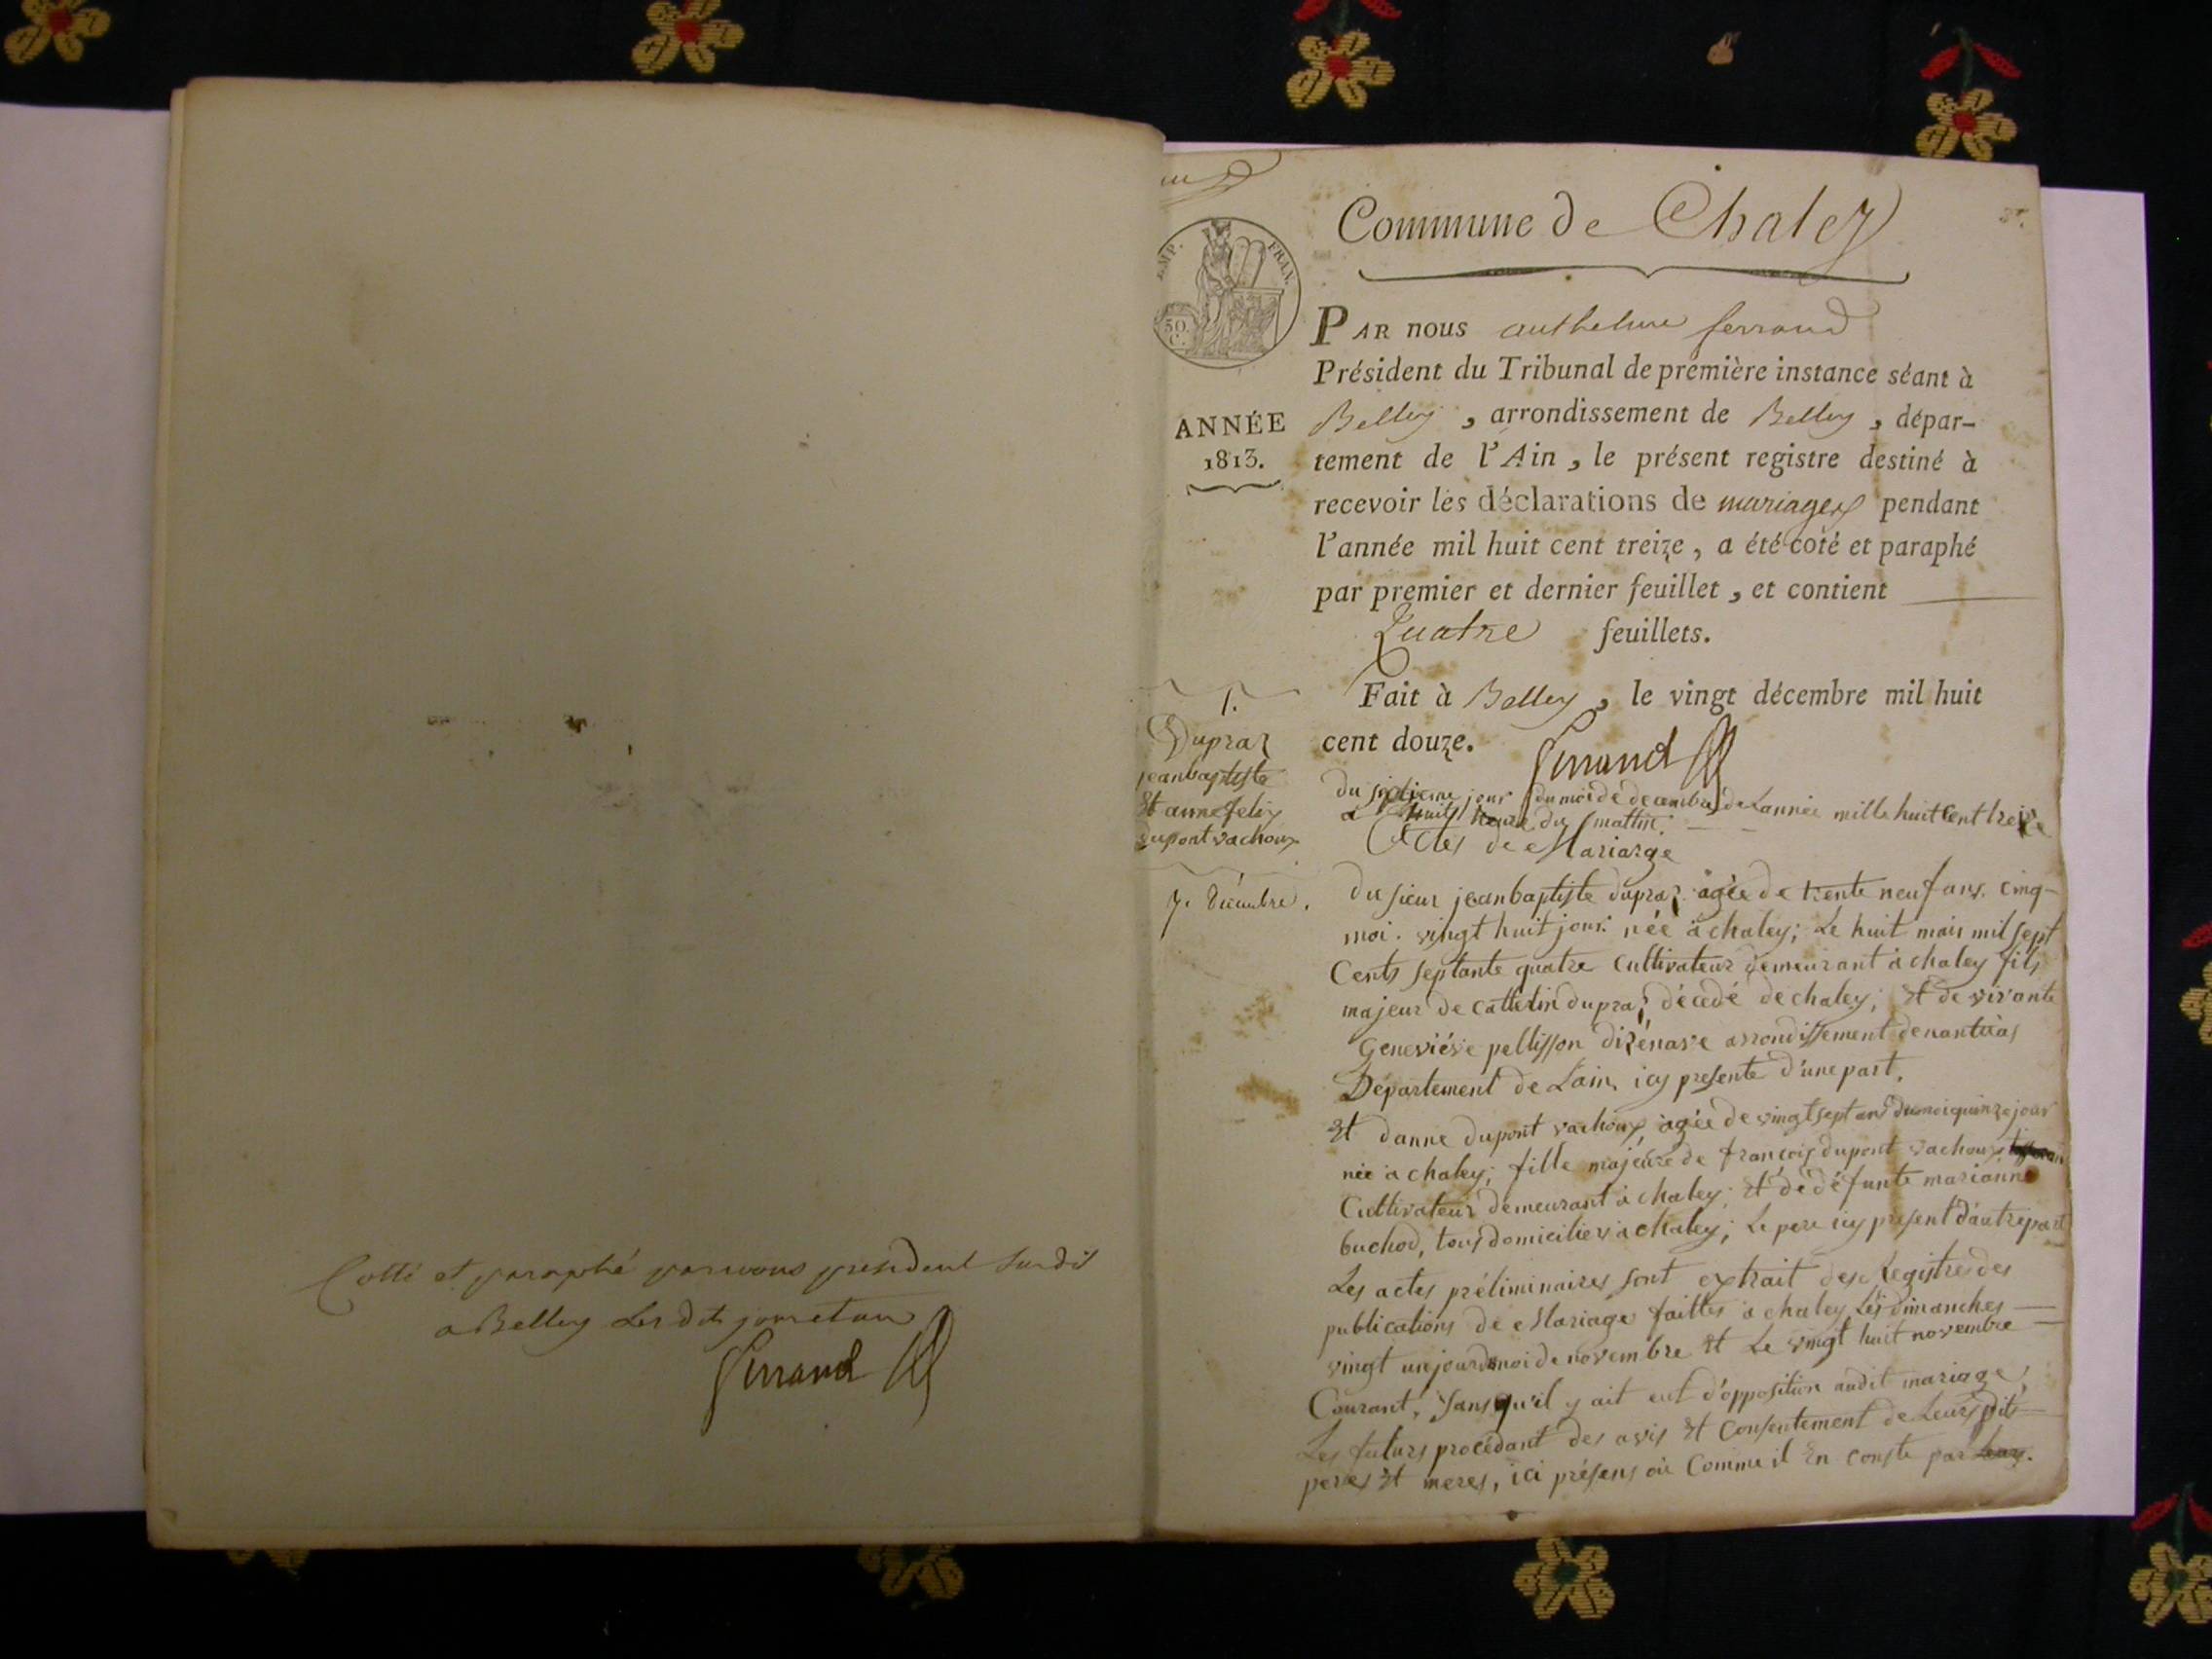 Cotté et paraphé par nous president susdit
a Belley lesdits jour et an
Ferrand
EMP. FRAN.
50
C.
Commune de Chaley
ANNÉE
1813.
PAR nous anthelme ferrand
Président du Tribunal de première instance séant à
Belley , arrondissement de Belley , dépar-
tement de l'Ain , le présent registre destiné à
recevoir les déclarations de mariages pendant
l'année mil huit cent treize , a été coté et paraphé
par premier et dernier feuillet , et contient
Quatre feuillets.
Fait à Belley , le vingt décembre mil huit
cent douze.
Ferrand
1.
Dupraz
jeanbaptiste
Et anne felix
dupont vachoux
7. Décembre.
Du septieme jour du moi de decembre de Lannée mille huit Cent treize
a huit heure du mattin.
Actes de Mariarge
Du sieur jeanbaptiste dupraz agée de trente neuf ans cinq-
moi. vingt huit jour. née à chaley; Le huit mais mil sept
Cents septante quatre Cultivateur demeurant à chaley fils
majeur de cattelin dupraz décedé de chaley; Et de vivante
Geneviéve pellisson dizénave arrondissement denantuas
Département de Lain, icy presente d'une part.
Et danne dupont vachoux, agée de vingt sept ans dumoi quinze jour
née a chaley; fille majeure de francois dupont vachoux
Cultivateur demeurant à chaley; Et de défunte marianne
buchod, tous domiciliés à chaley; Le pere icy present d'autre part
Les actes préliminaires sont extrait des Registre des
publications de Mariage faittes a chaley Les dimanches
vingt un jour du moi de novembre Et Le vingt huit novembre
Courant, sans qu'il y ait eut d'opposition audit mariage,
Les futurs procédant des avis Et Consentement de Leurs dits
peres Et meres, ici présens où Comme il En conste par Leurs.